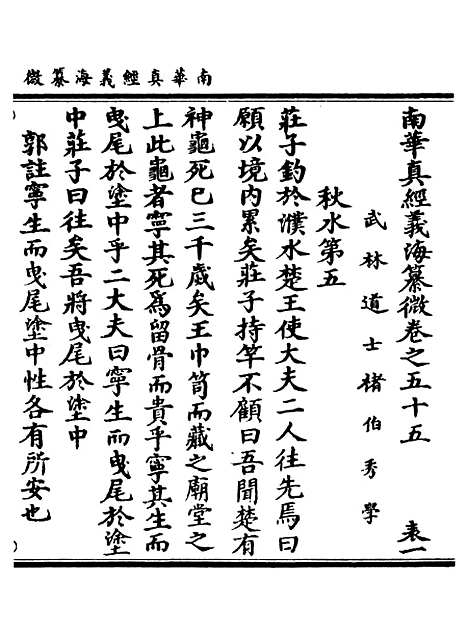 南華真經義海纂微
南華真經義海纂微卷之五十五 表一
武林道士褚伯秀學
秋水第五
莊子釣於濮水楚王使大夫二人往先焉曰
願以境內累矣莊子持竿不顧曰吾聞楚有
神龜死已三千歲矣王巾笥而藏之廟堂之
上此龜者寧其死爲留骨而貴乎寧其生而
曳尾於塗中乎二大夫曰寧生而曳尾於塗
中莊子曰往矣吾將曳尾於塗中
郭註寧生而曳尾塗中性各有所安也